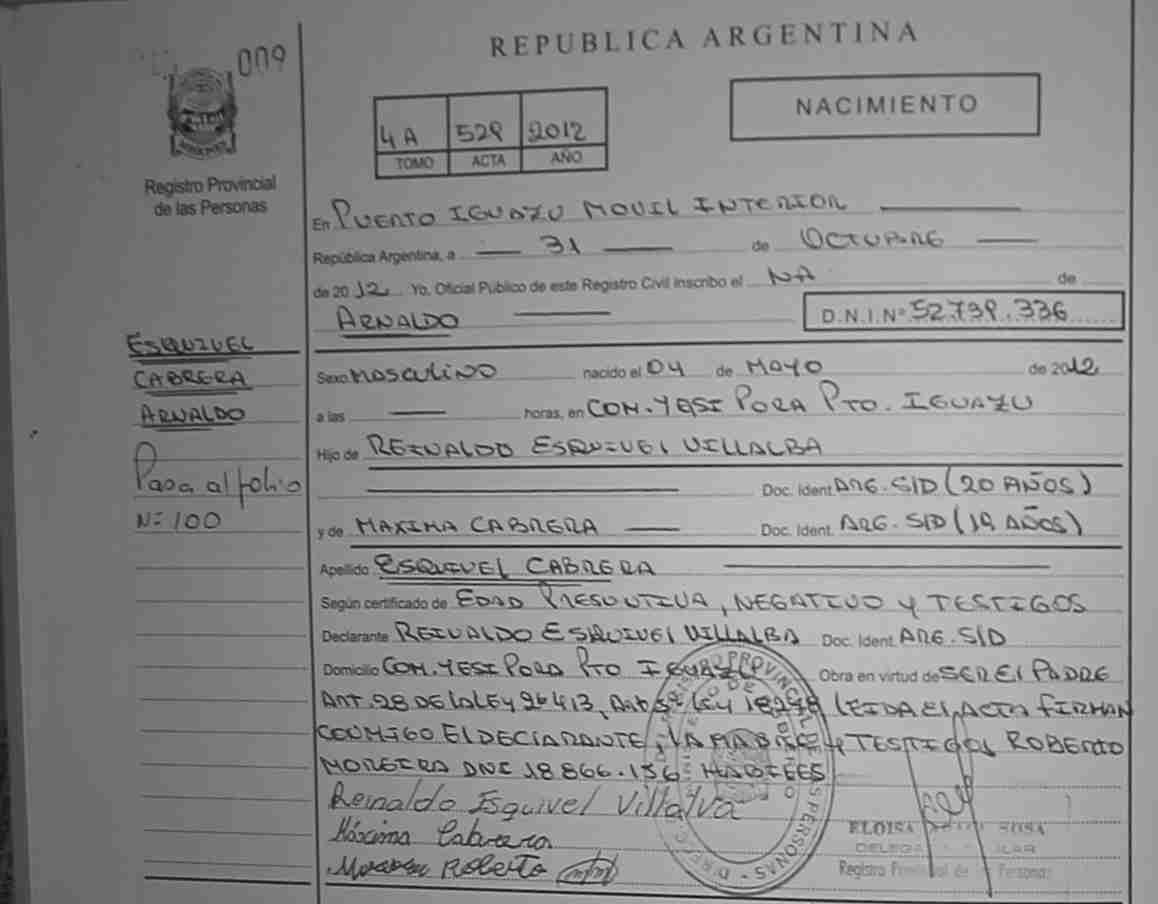 009
REPUBLICA ARGENTINA
NACIMIENTO
4A 529 2012
TOMO ACTA AÑO
Registro Provincial
de las Personas
En PUERTO IGUAZU MOVIL INTERIOR
República Argentina, a 31 de OCTUBRE
de 2012 Yo, Oficial Público de este Registro Civil inscribo el NA de
ARNALDO D.N.I.Nº 52.739.336
ESQUIVEL
CABRERA
ARNALDO
Pasa al folio
Nº 100
Sexo MASCULINO nacido el 04 de MAYO de 2012
a las horas, en COM. YASI PORA PTO. IGUAZU
Hijo de REINALDO ESQUIVEL VILLALBA
Doc. Ident ARG. S/D (20 AÑOS)
y de MAXIMA CABRERA Doc. Ident. ARG. S/D (19 AÑOS)
Apellido ESQUIVEL CABRERA
Según certificado de EDAD PRESUNTIVA, NEGATIVO Y TESTIGOS
Declarante REINALDO ESQUIVEL VILLALBA Doc. Ident. ARG. S/D
Domicilio COM. YESI PORA PTO IGUAZU Obra en virtud de SER EL PADRE
ART. 28 DE LA LEY 26413, Art 5º LEY 18248 LEIDA EL ACTA FIRMAN
CONMIGO EL DECLARANTE, LA MADRE Y TESTIGOS ROBERTO
MOREIRA DNI 18.866.156 HABILES
Reinaldo Esquivel Villalva
Máxima Cabrera
Roberto
ELOISA SOSA
Registro Provincial de las Personas